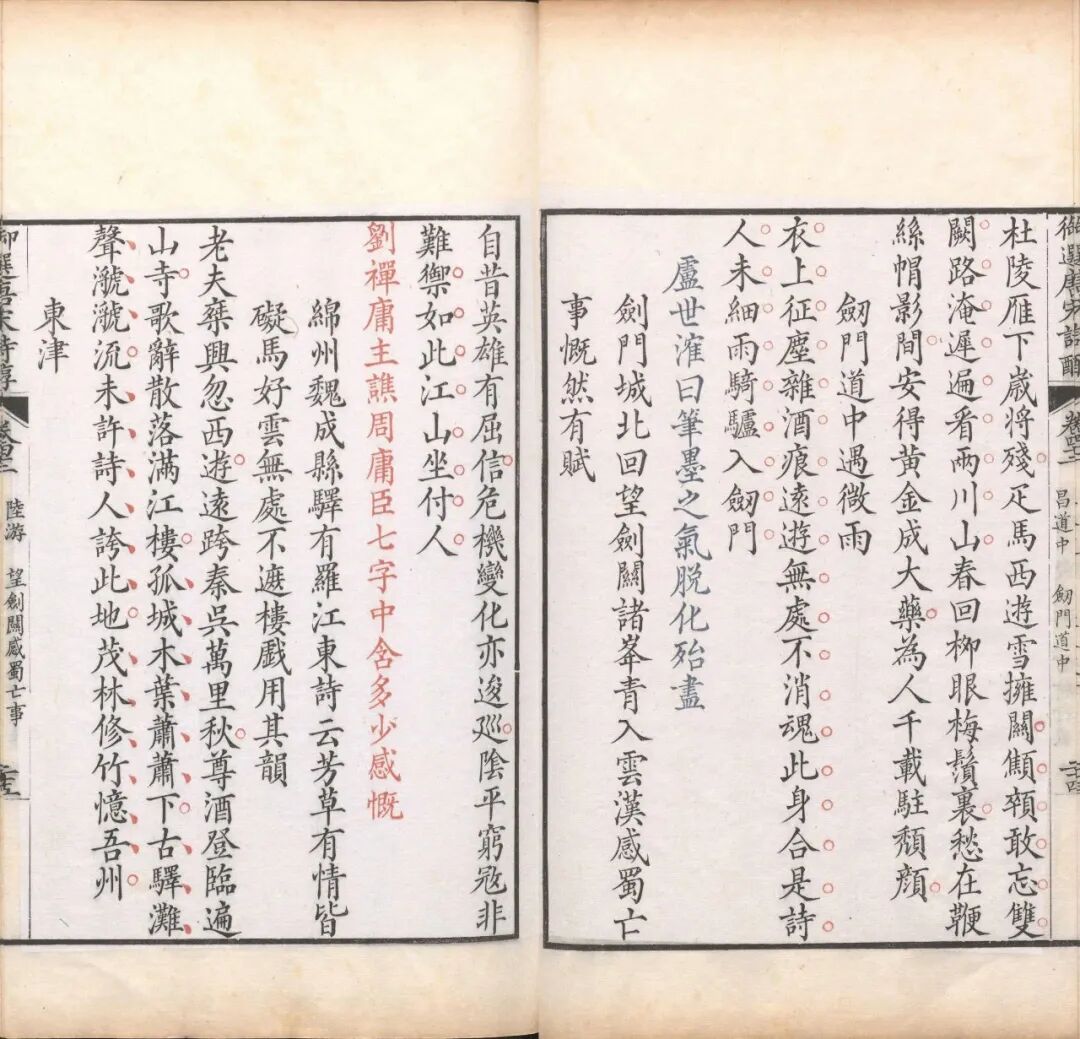 御選唐宋詩醇 卷四十三 昌道中 劒門道中 二十四
杜陵雁下歲將殘疋馬西遊雪擁關顦顇敢忘雙
闕路淹遲遍看兩川山春回柳眼梅鬚裏愁在鞭
絲帽影間安得黃金成大藥為人千載駐頹顏
劒門道中遇微雨
衣上征塵雜酒痕遠遊無處不消魂此身合是詩
人未細雨騎驢入劒門
盧世㴶曰筆墨之氣脫化殆盡
劍門城北回望劍關諸峯青入雲漢感蜀亡
事慨然有賦
自昔英雄有屈信危機變化亦逡廵陰平窮寇非
難禦如此江山坐付人
劉禪庸主譙周庸臣七字中含多少感慨
綿州魏成縣驛有羅江東詩云芳草有情皆
礙馬好雲無處不遮樓戲用其韻
老夫乘興忽西遊遠跨秦吳萬里秋尊酒登臨遍
山寺歌辭散落滿江樓孤城木葉蕭蕭下古驛灘
聲㶁㶁流未許詩人誇此地茂林修竹憶吾州
東津
御選唐宋詩醇 卷四十三 陸游 望劍關感蜀亡事 二十五